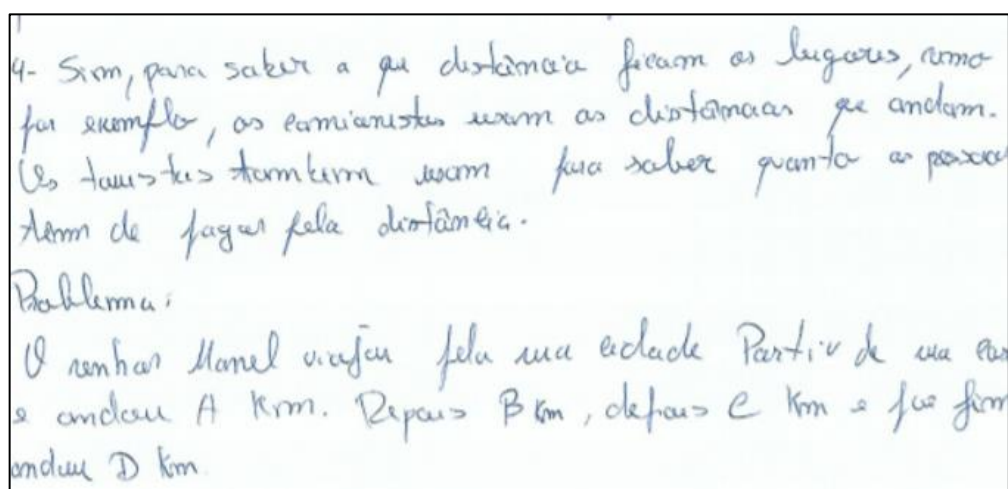 4- Sim, para saber a que distância ficam os lugares, como
por exemplo, os camionistas usam as distâncias que andam.
Os taxistas também usam para saber quanto as pessoa
têm de pagar pela distância.
Problema:
O senhor Manel viajou pela sua cidade Partiu de sua cas
e andou A Km. Depois B Km, depois C Km e por fim
andou D Km.